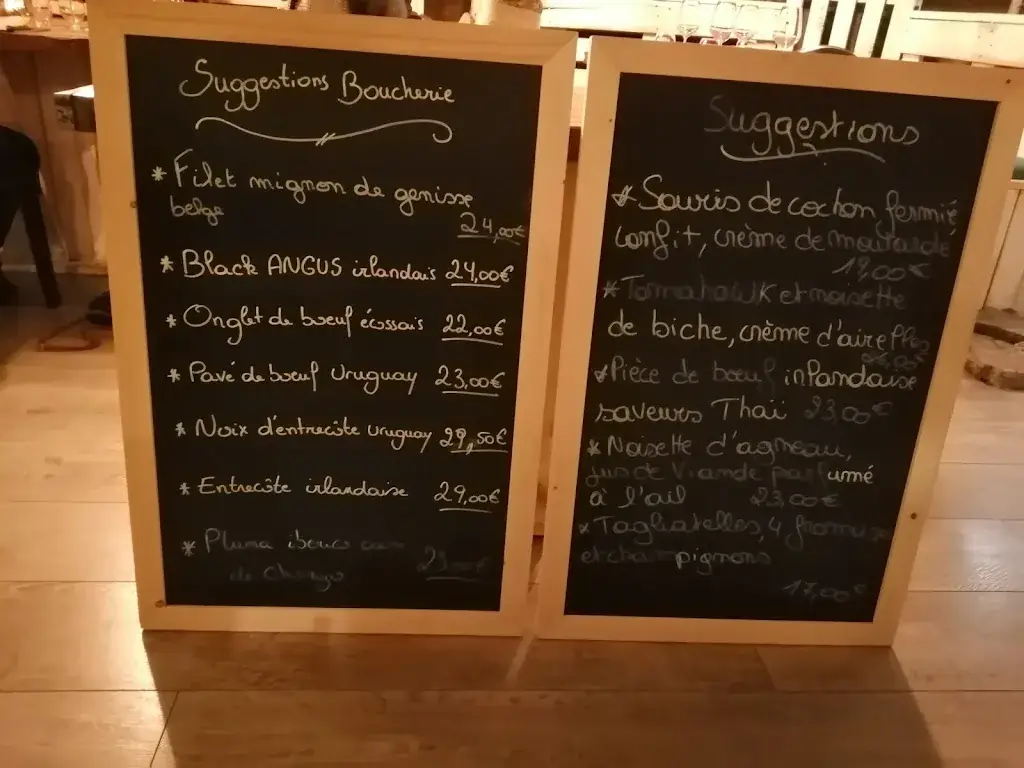 Suggestions Boucherie
* Filet mignon de genisse
belge
24,00€
* Black ANGUS irlandais 24,00€
* Onglet de boeuf écossais 22,00€
* Pavé de boeuf Uruguay 23,00€
* Noix d'entrecôte uruguay 29,50€
* Entrecôte irlandaise 29,00€
* Pluma
de
Suggestions
* Souris de cochon fermié
confit, crème de moutarde
19,00€
* Tomahawk et noisette
de biche, crème d'airelles
* Pièce de boeuf irlandaise
saveurs Thaï 23,00€
* Noisette d'agneau,
jus de viande parfumé
à l'ail 23,00€
* Tagliatelles, 4 fromages
et champignons
17,00€